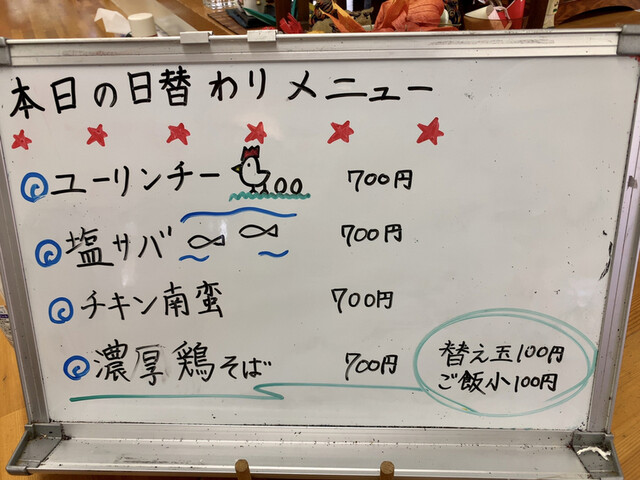 本日の日替わりメニュー
ユーリンチー 700円
塩サバ 700円
チキン南蛮 700円
濃厚鶏そば 700円
替え玉100円
ご飯小100円